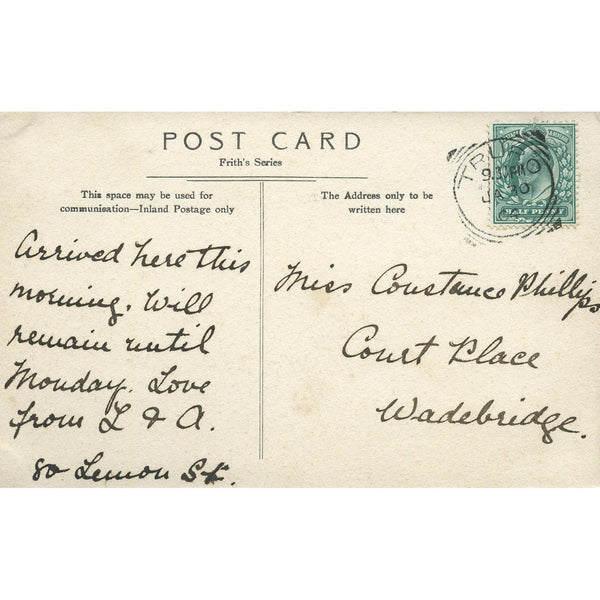 POST CARD
Frith's Series
This space may be used for
communication—Inland Postage only
The Address only to be
written here
Arrived here this
morning. Will
remain until
Monday. Love
from L & A.
80 Lemon St.
Miss Constance Phillips
Court Place
Wadebridge.
TRURO
9.30PM
HALF PENNY